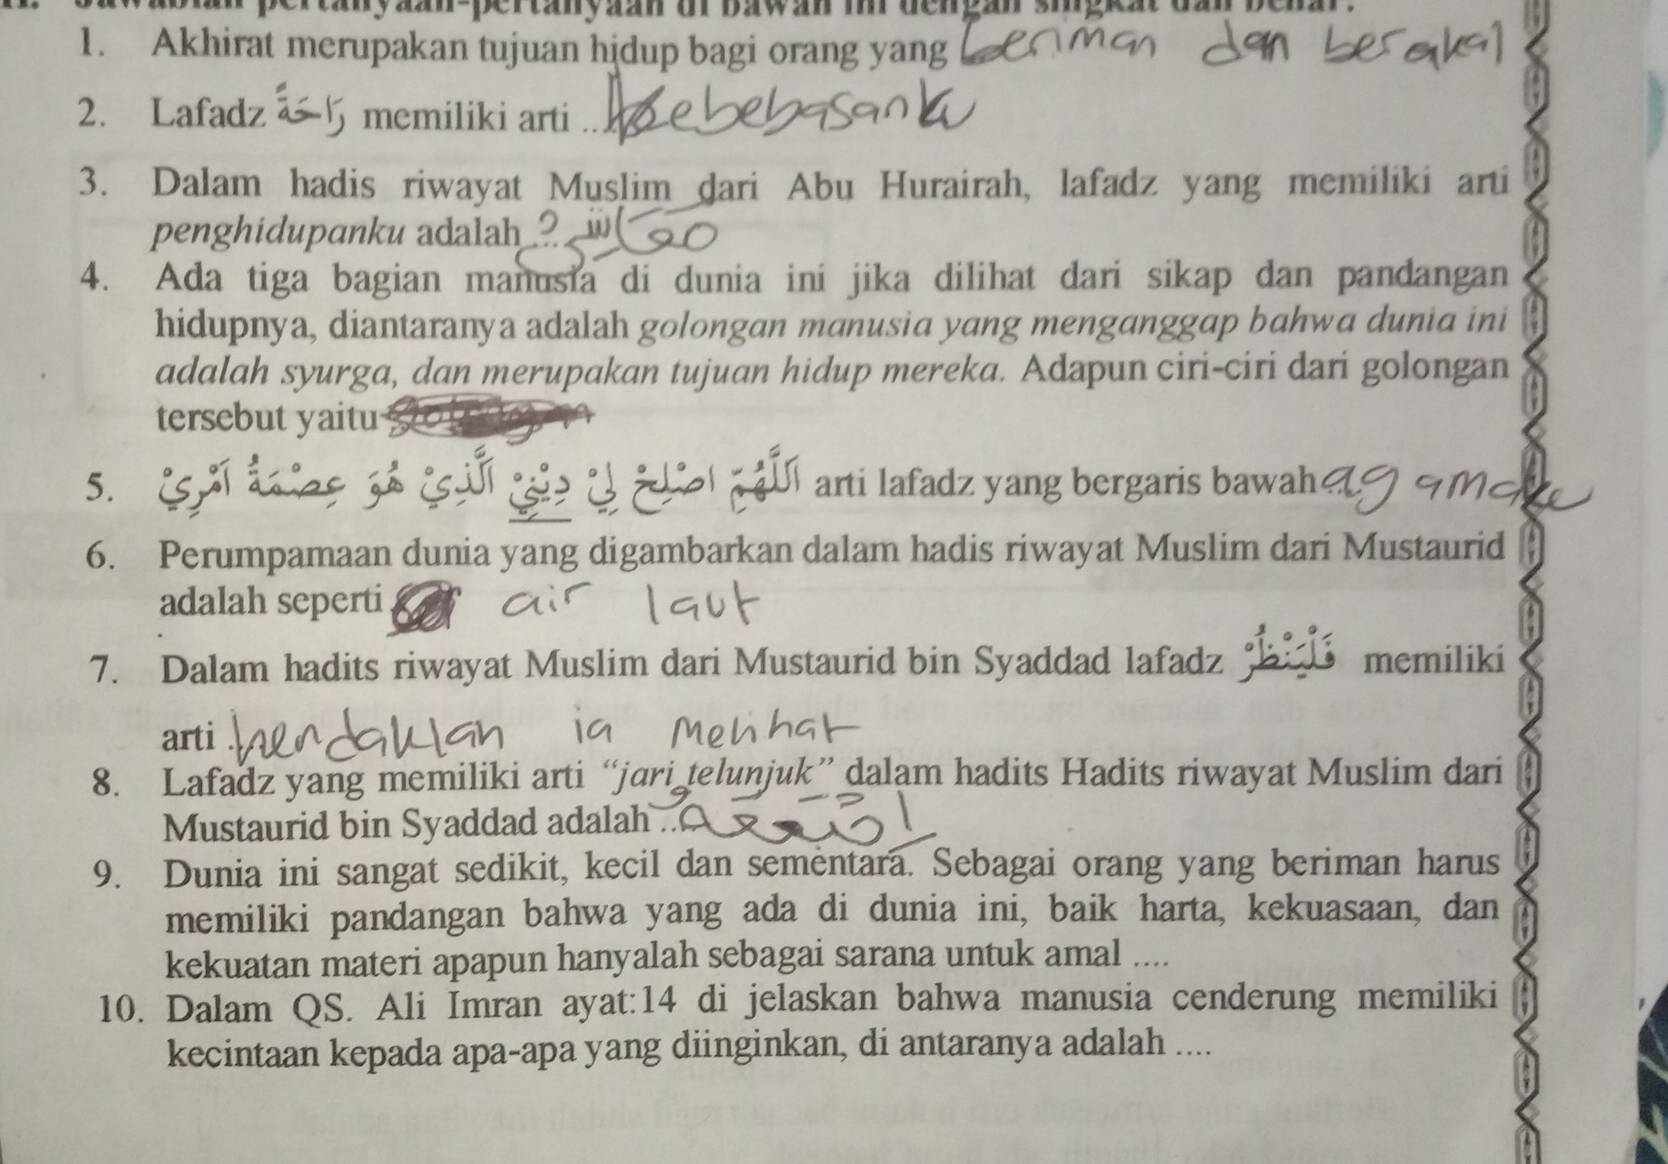 Jawablah pertanyaan-pertanyaan di bawah ini dengan singkat dan benar.
1. Akhirat merupakan tujuan hidup bagi orang yang beriman dan berakal
2. Lafadz رَاحَةً memiliki arti .. kebebasanku
3. Dalam hadis riwayat Muslim dari Abu Hurairah, lafadz yang memiliki arti
penghidupanku adalah ..?
4. Ada tiga bagian manusia di dunia ini jika dilihat dari sikap dan pandangan
hidupnya, diantaranya adalah golongan manusia yang menganggap bahwa dunia ini
adalah syurga, dan merupakan tujuan hidup mereka. Adapun ciri-ciri dari golongan
tersebut yaitu
5. اَللّٰهُمَّ اصْلِحْ لِيْ دِيْنِيْ اَلَّذِيْ هُوَ عِصْمَةُ اَمْرِيْ arti lafadz yang bergaris bawah agamaku
6. Perumpamaan dunia yang digambarkan dalam hadis riwayat Muslim dari Mustaurid
adalah seperti air laut
7. Dalam hadits riwayat Muslim dari Mustaurid bin Syaddad lafadz فَلْيَنْظُرْ memiliki
arti . hendaklah ia melihat
8. Lafadz yang memiliki arti “jari telunjuk” dalam hadits Hadits riwayat Muslim dari
Mustaurid bin Syaddad adalah ..
9. Dunia ini sangat sedikit, kecil dan sementara. Sebagai orang yang beriman harus
memiliki pandangan bahwa yang ada di dunia ini, baik harta, kekuasaan, dan
kekuatan materi apapun hanyalah sebagai sarana untuk amal ....
10. Dalam QS. Ali Imran ayat:14 di jelaskan bahwa manusia cenderung memiliki
kecintaan kepada apa-apa yang diinginkan, di antaranya adalah ....